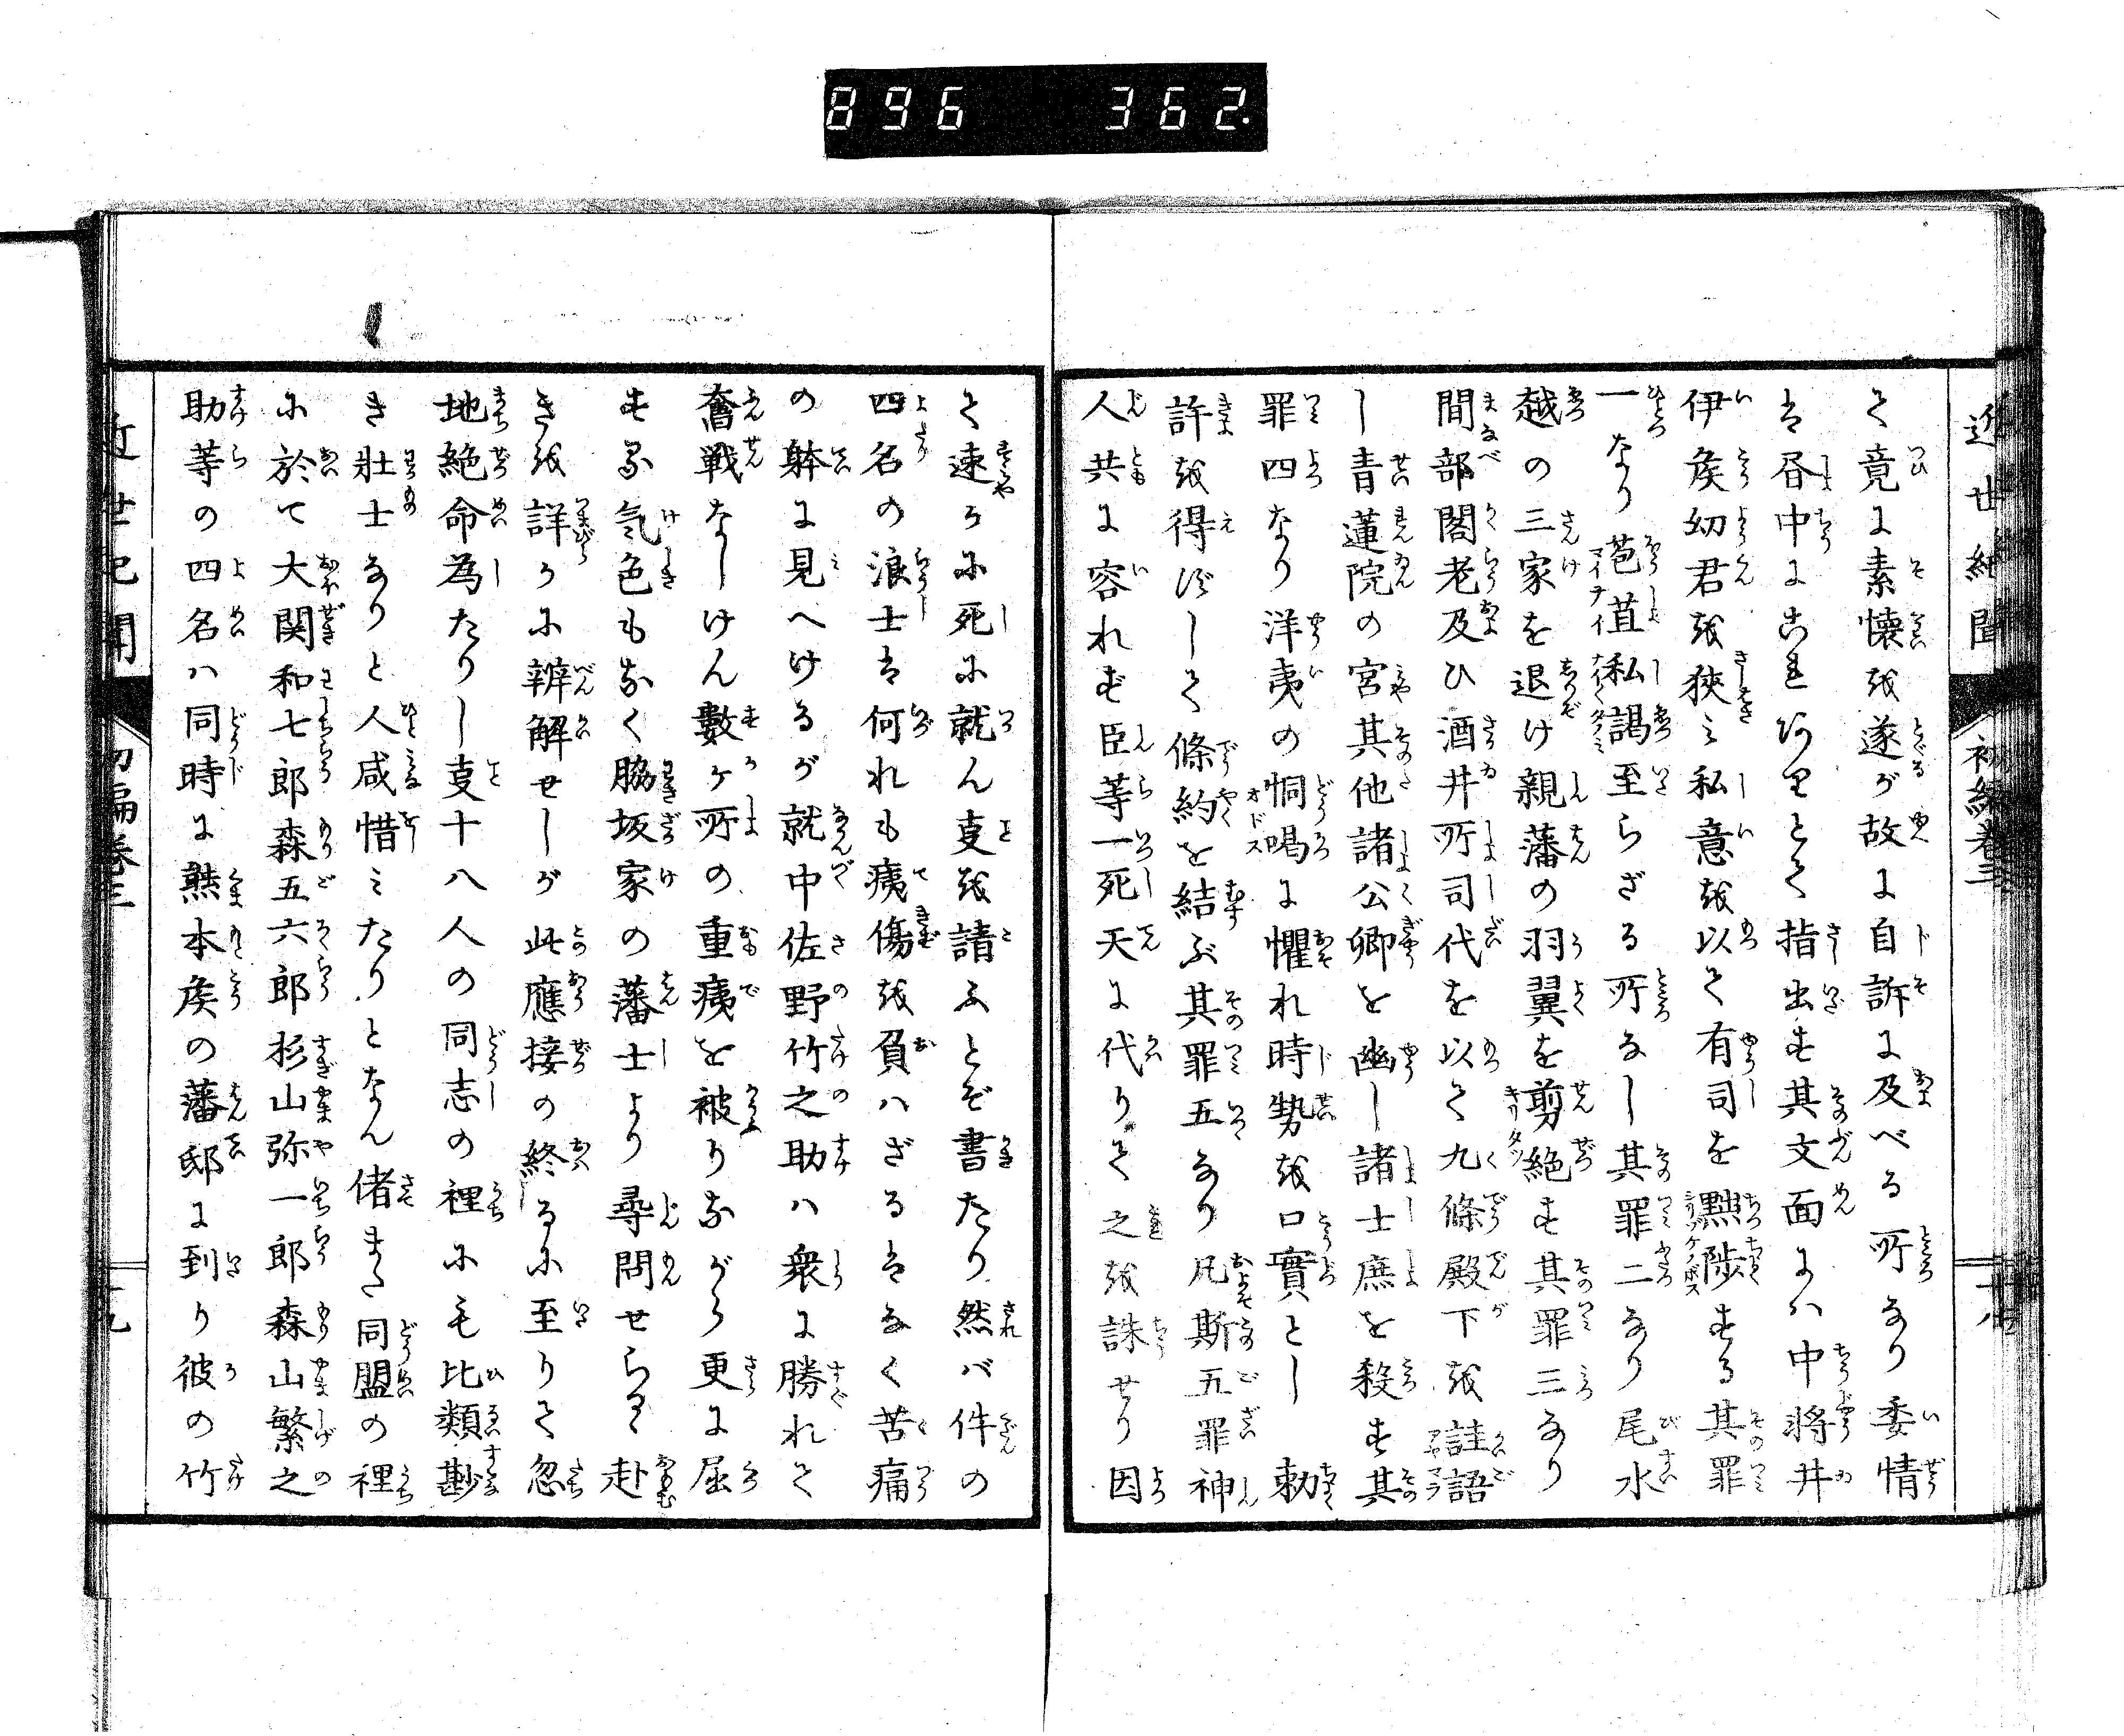 896 362.
近世紀聞 初編巻三 十八
て竟に素懐を遂るが故に自訴に及べる所なり委情
は昼中にこれありとて指出す其文面には中将井
伊矦幼君を狭ミ私意を以て有司を黜陟する其罪
一なり苞苴私謁至らざる所なし其罪二なり尾水
越の三家を退け親藩の羽翼を剪絶す其罪三なり
間部閣老及ひ酒井所司代を以て九條殿下を詿誤
し青蓮院の宮其他諸公卿を幽し諸士庶を殺す其
罪四なり洋夷の恫喝に懼れ時勢を口實とし 勅
許を得ずして條約を結ぶ其罪五なり凡斯五罪神
人共に容れず臣等一死天に代りて之を誅せり因
て速かに死に就ん叓を請ふとぞ書たり然バ件の
四名の浪士は何れも痍傷を負ハざるはなく苦痛
の躰に見へけるが就中佐野竹之助ハ衆に勝れて
奮戦なしけん數ヶ所の重痍を被りながら更に屈
する気色もなく脇坂家の藩士より尋問せらるゝ赴
きを詳かに辨解せしが此應接の終るに至りて忽
地絶命為たりし叓十八人の同志の裡にも比類尠
き壮士なりと人咸惜ミたりとなん偖また同盟の裡
に於て大関和七郎森五六郎杉山弥一郎森山繁之
助等の四名ハ同時に熊本矦の藩邸に到り彼の竹
近世紀聞 初編巻三 十九